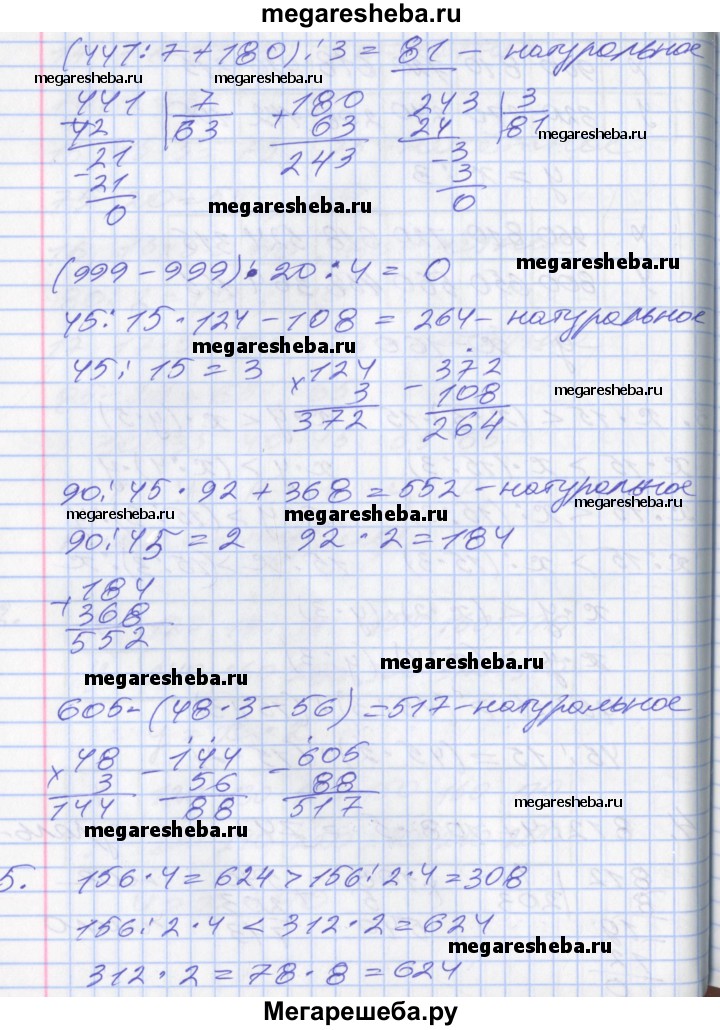 megaresheba.ru
(441:7+180):3=81 - натуральное
megaresheba.ru megaresheba.ru
441 7 180 243 3
42 63 63 24 81 megaresheba.ru
21 243 3
- 21 3
0 0
megaresheba.ru
(999-999)·20:4=0 megaresheba.ru
45:15·124-108=264- натуральное
megaresheba.ru
45:15=3 ×124 - 372
3 108 megaresheba.ru
372 264
90:45·92+368=552-натуральное
megaresheba.ru megaresheba.ru megaresheba.ru
90:45=2 92·2=184
+184
368
552
megaresheba.ru
megaresheba.ru
605-(48·3-56)=517-натуральное
×48 -144 -605
3 56 88
144 88 517
megaresheba.ru
megaresheba.ru
5. 156·4=624>156:2·4=308
156:2·4<312·2=624
megaresheba.ru
312·2=78·8=624
Мегарешеба.ру